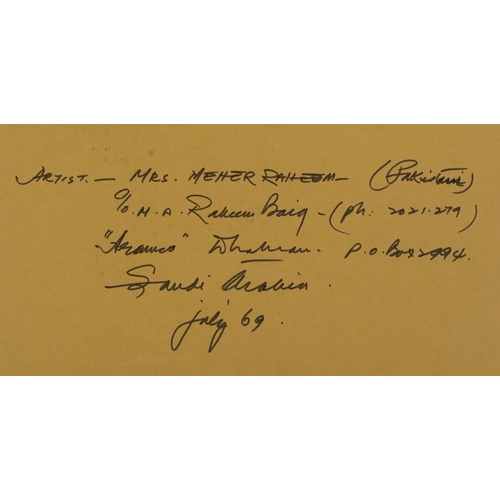 ARTIST. — MRS. MEHER RAHEEM — (Pakistani)
C/O. M. A. Raheem Baig — (Ph: 2021.279)
"Aramco" Dhahran. P.O. Box 2994.
Saudi Arabia.
July 69.